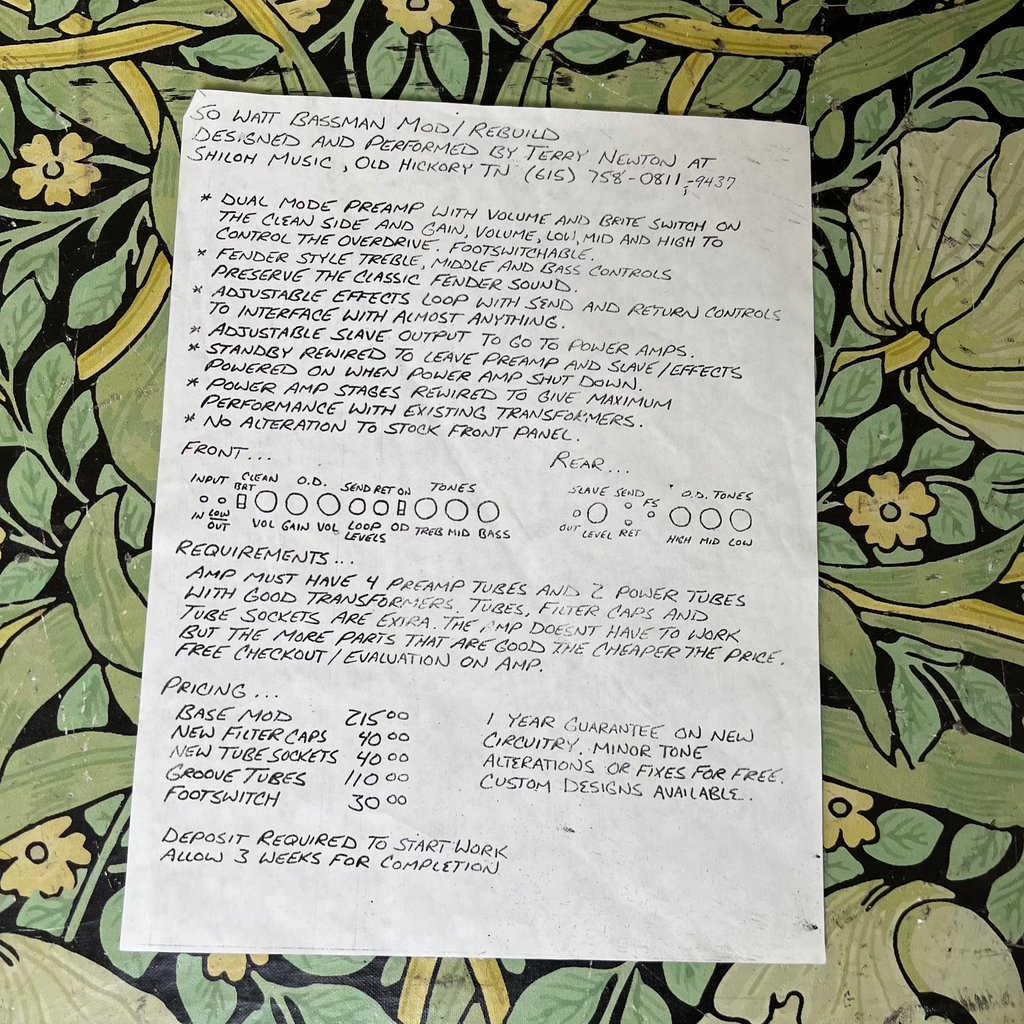 50 WATT BASSMAN MOD/REBUILD
DESIGNED AND PERFORMED BY TERRY NEWTON AT
SHILOH MUSIC, OLD HICKORY TN (615) 758-0811,-9437
* DUAL MODE PREAMP WITH VOLUME AND BRITE SWITCH ON
THE CLEAN SIDE AND GAIN, VOLUME, LOW, MID AND HIGH TO
CONTROL THE OVERDRIVE. FOOTSWITCHABLE.
* FENDER STYLE TREBLE, MIDDLE AND BASS CONTROLS
PRESERVE THE CLASSIC FENDER SOUND.
* ADJUSTABLE EFFECTS LOOP WITH SEND AND RETURN CONTROLS
TO INTERFACE WITH ALMOST ANYTHING.
* ADJUSTABLE SLAVE OUTPUT TO GO TO POWER AMPS.
* STANDBY REWIRED TO LEAVE PREAMP AND SLAVE/EFFECTS
POWERED ON WHEN POWER AMP SHUT DOWN.
* POWER AMP STAGES REWIRED TO GIVE MAXIMUM
PERFORMANCE WITH EXISTING TRANSFORMERS.
* NO ALTERATION TO STOCK FRONT PANEL.
FRONT...
INPUT CLEAN O.D. SEND RET ON TONES
BRT
IN LOW VOL GAIN VOL LOOP OD TREB MID BASS
OUT LEVELS
REAR...
SLAVE SEND FS O.D. TONES
OUT LEVEL RET HIGH MID LOW
REQUIREMENTS...
AMP MUST HAVE 4 PREAMP TUBES AND 2 POWER TUBES
WITH GOOD TRANSFORMERS. TUBES, FILTER CAPS AND
TUBE SOCKETS ARE EXTRA. THE AMP DOESNT HAVE TO WORK
BUT THE MORE PARTS THAT ARE GOOD THE CHEAPER THE PRICE.
FREE CHECKOUT/EVALUATION ON AMP.
PRICING...
BASE MOD 215 00
NEW FILTER CAPS 40 00
NEW TUBE SOCKETS 40 00
GROOVE TUBES 110 00
FOOTSWITCH 30 00
1 YEAR GUARANTEE ON NEW
CIRCUITRY. MINOR TONE
ALTERATIONS OR FIXES FOR FREE.
CUSTOM DESIGNS AVAILABLE.
DEPOSIT REQUIRED TO START WORK
ALLOW 3 WEEKS FOR COMPLETION